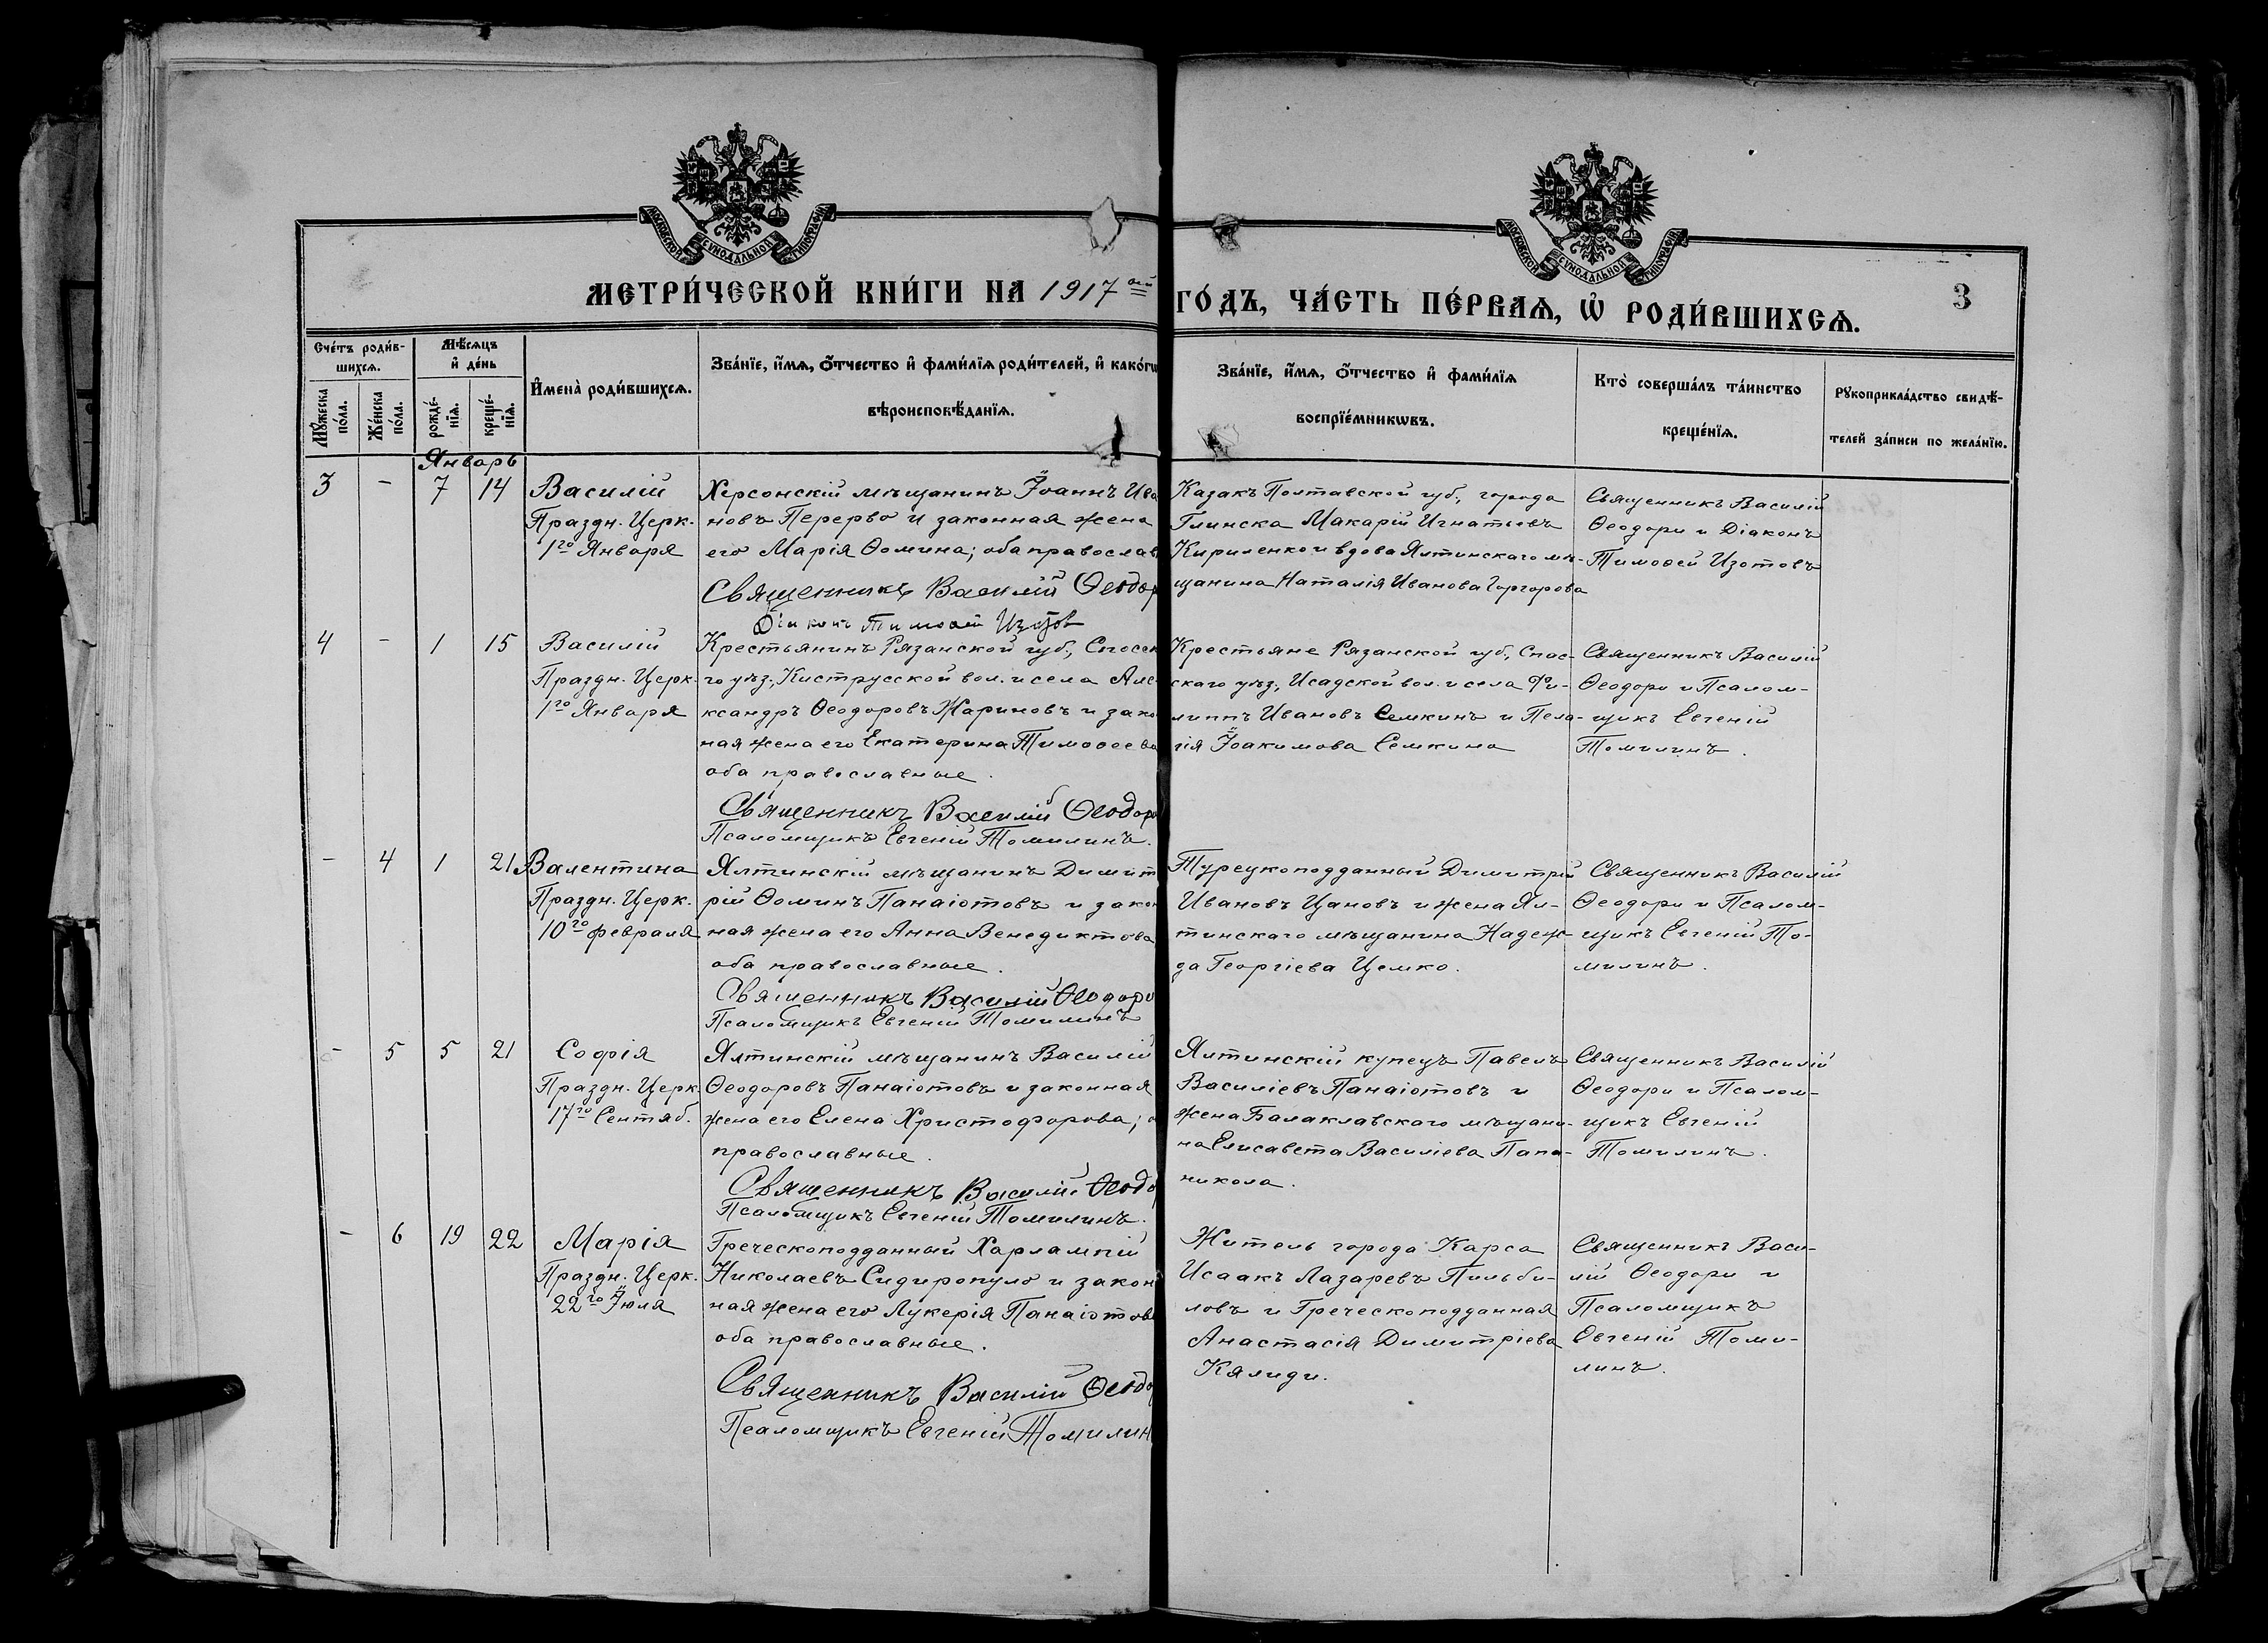 МОСКОВСКОЙ СУНОДАЛЬНОЙ ТИПОГРАФІИ
МОСКОВСКОЙ СУНОДАЛЬНОЙ ТИПОГРАФІИ
МЕТРИ́ЧЕСКОЙ КНИ́ГИ НА 1917 ой
ГО́ДЪ, ЧА́СТЬ ПЕ́РВАѦ, Ѡ РОДИ́ВШИХСѦ.
3
Сче́тъ роди́в-
шихсѧ.
Мѣ́сѧцъ
и҆ де́нь
И҆мена̀ роди́вшихсѧ.
Зва́нїе, и҆́мѧ, о҆́тчество и҆ фами́лїѧ роди́телей, и҆ како́гѡ
вѣроисповѣ́данїѧ.
Зва́нїе, и҆́мѧ, о҆́тчество и҆ фами́лїѧ
воспрїе́мникѡвъ.
Кто̀ соверша́лъ та́инство
креще́нїѧ.
Рꙋкоприкла́дство свидѣ́-
телей за́писи по жела́нїю.
Мꙋ́жеска
по́ла.
Же́нска
по́ла.
рожде́-
нїѧ.
креще́-
нїѧ.
Январь
3 - 7 14 Василій
Праздн. Церк.
1го Января
Херсонскій мѣщанинъ Іоаннъ Ива
новъ Перерво и законная жена
его Марія Ѳомина; оба православ
Священникъ Василій Ѳеодор
Діаконъ Тимоѳей Изотов
Казакъ Полтавской губ., города
Глинска Макарій Игнатьевъ
Кириленко и вдова Ялтинскаго мѣ-
щанина Наталія Иванова Горгорова
Священникъ Василій
Ѳеодори и Діаконъ
Тимоѳей Изотовъ
4 - 1 15 Василій
Праздн. Церк.
1го Января
Крестьянинъ Рязанской губ., Спасск
го уѣз., Киструсской вол. и села Але-
ксандръ Ѳеодоровъ Жариновъ и зако
ная жена его Екатерина Тимоѳеева
оба православные.
Священникъ Василій Ѳеодори
Псаломщикъ Евгеній Томилинъ.
Крестьяне Рязанской губ., Спас-
скаго уѣз., Исадской вол. и села Фи-
липпъ Ивановъ Семкинъ и Пела-
гія Іоакимова Семкина
Священникъ Василій
Ѳеодори и Псалом-
щикъ Евгеній
Томилинъ.
- 4 1 21 Валентина
Праздн. Церк.
10го февраля
Ялтинскій мѣщанинъ Димит
рій Ѳоминъ Панаіотовъ и закон
ная жена его Анна Венедиктова
оба православные.
Священникъ Василій Ѳеодори
Псаломщикъ Евгеній Томилинъ
Турецкоподданный Димитрій
Ивановъ Цановъ и жена Ял-
тинскаго мѣщанина Надеж-
да Георгіева Цемко.
Священникъ Василій
Ѳеодори и Псалом-
щикъ Евгеній То-
милинъ.
- 5 5 21 Софія
Праздн. Церк.
17го Сентяб.
Ялтинскій мѣщанинъ Василій
Ѳеодоровъ Панаіотовъ и законная
жена его Елена Христофорова; о
православные.
Священникъ Василій Ѳеодо
Псаломщикъ Евгеній Томилинъ.
Ялтинскій купецъ Павелъ
Василіевъ Панаіотовъ и
жена Балаклавскаго мѣщани-
на Елисавета Василіева Папа-
никола.
Священникъ Василій
Ѳеодори и Псалом-
щикъ Евгеній
Томилинъ.
- 6 19 22 Марія
Праздн. Церк.
22го Іюля
Греческоподданный Харлампій
Николаевъ Сидиропуло и закон
ная жена его Лукерія Панаіотова
оба православные.
Священникъ Василій Ѳеодо
Псаломщикъ Евгеній Томилин
Житель города Карса
Исаакъ Лазаревъ Пильби-
ловъ и Греческоподданная
Анастасія Димитріева
Калиди.
Священникъ Васи-
лій Ѳеодори и
Псаломщикъ
Евгеній Томи-
линъ.